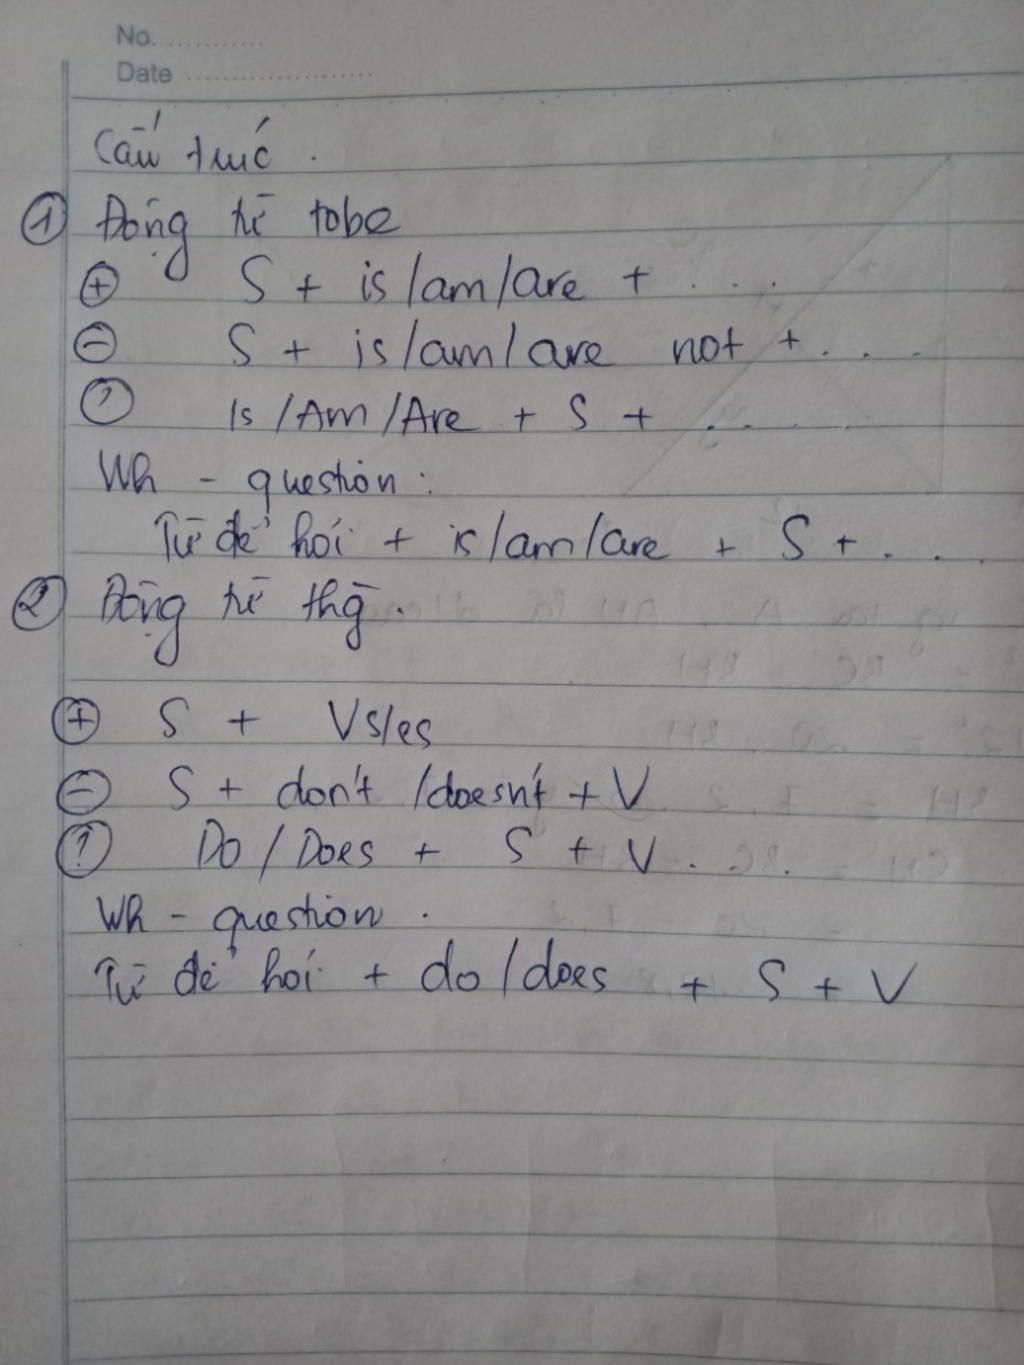 No. ............
Date .....................
Cấu trúc.
① Động từ tobe
⊕ S + is/am/are + ....
⊖ S + is/am/are not + ....
? Is/Am/Are + S + ...
Wh - question:
Từ để hỏi + is/am/are + S + ...
② Động từ thg.
⊕ S + Vs/es
⊖ S + don't /doesn't + V
? Do/Does + S + V.
Wh - question.
Từ để hỏi + do/does + S + V